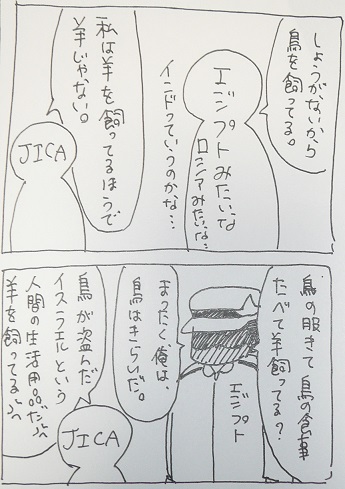 しょうがないから
鳥を飼ってる。
エジプトみたいな
ロシアみたいな…
インドっていうのかな…
私は羊を飼ってるほうで
羊じゃない。
JICA
鳥の服きて鳥の食事
たべて羊飼ってる?
エジプト
まったく俺は、
鳥はきらいだ。
鳥が盗んだ
イスラエルという
人間の生活用品だ
羊を飼ってる
JICA